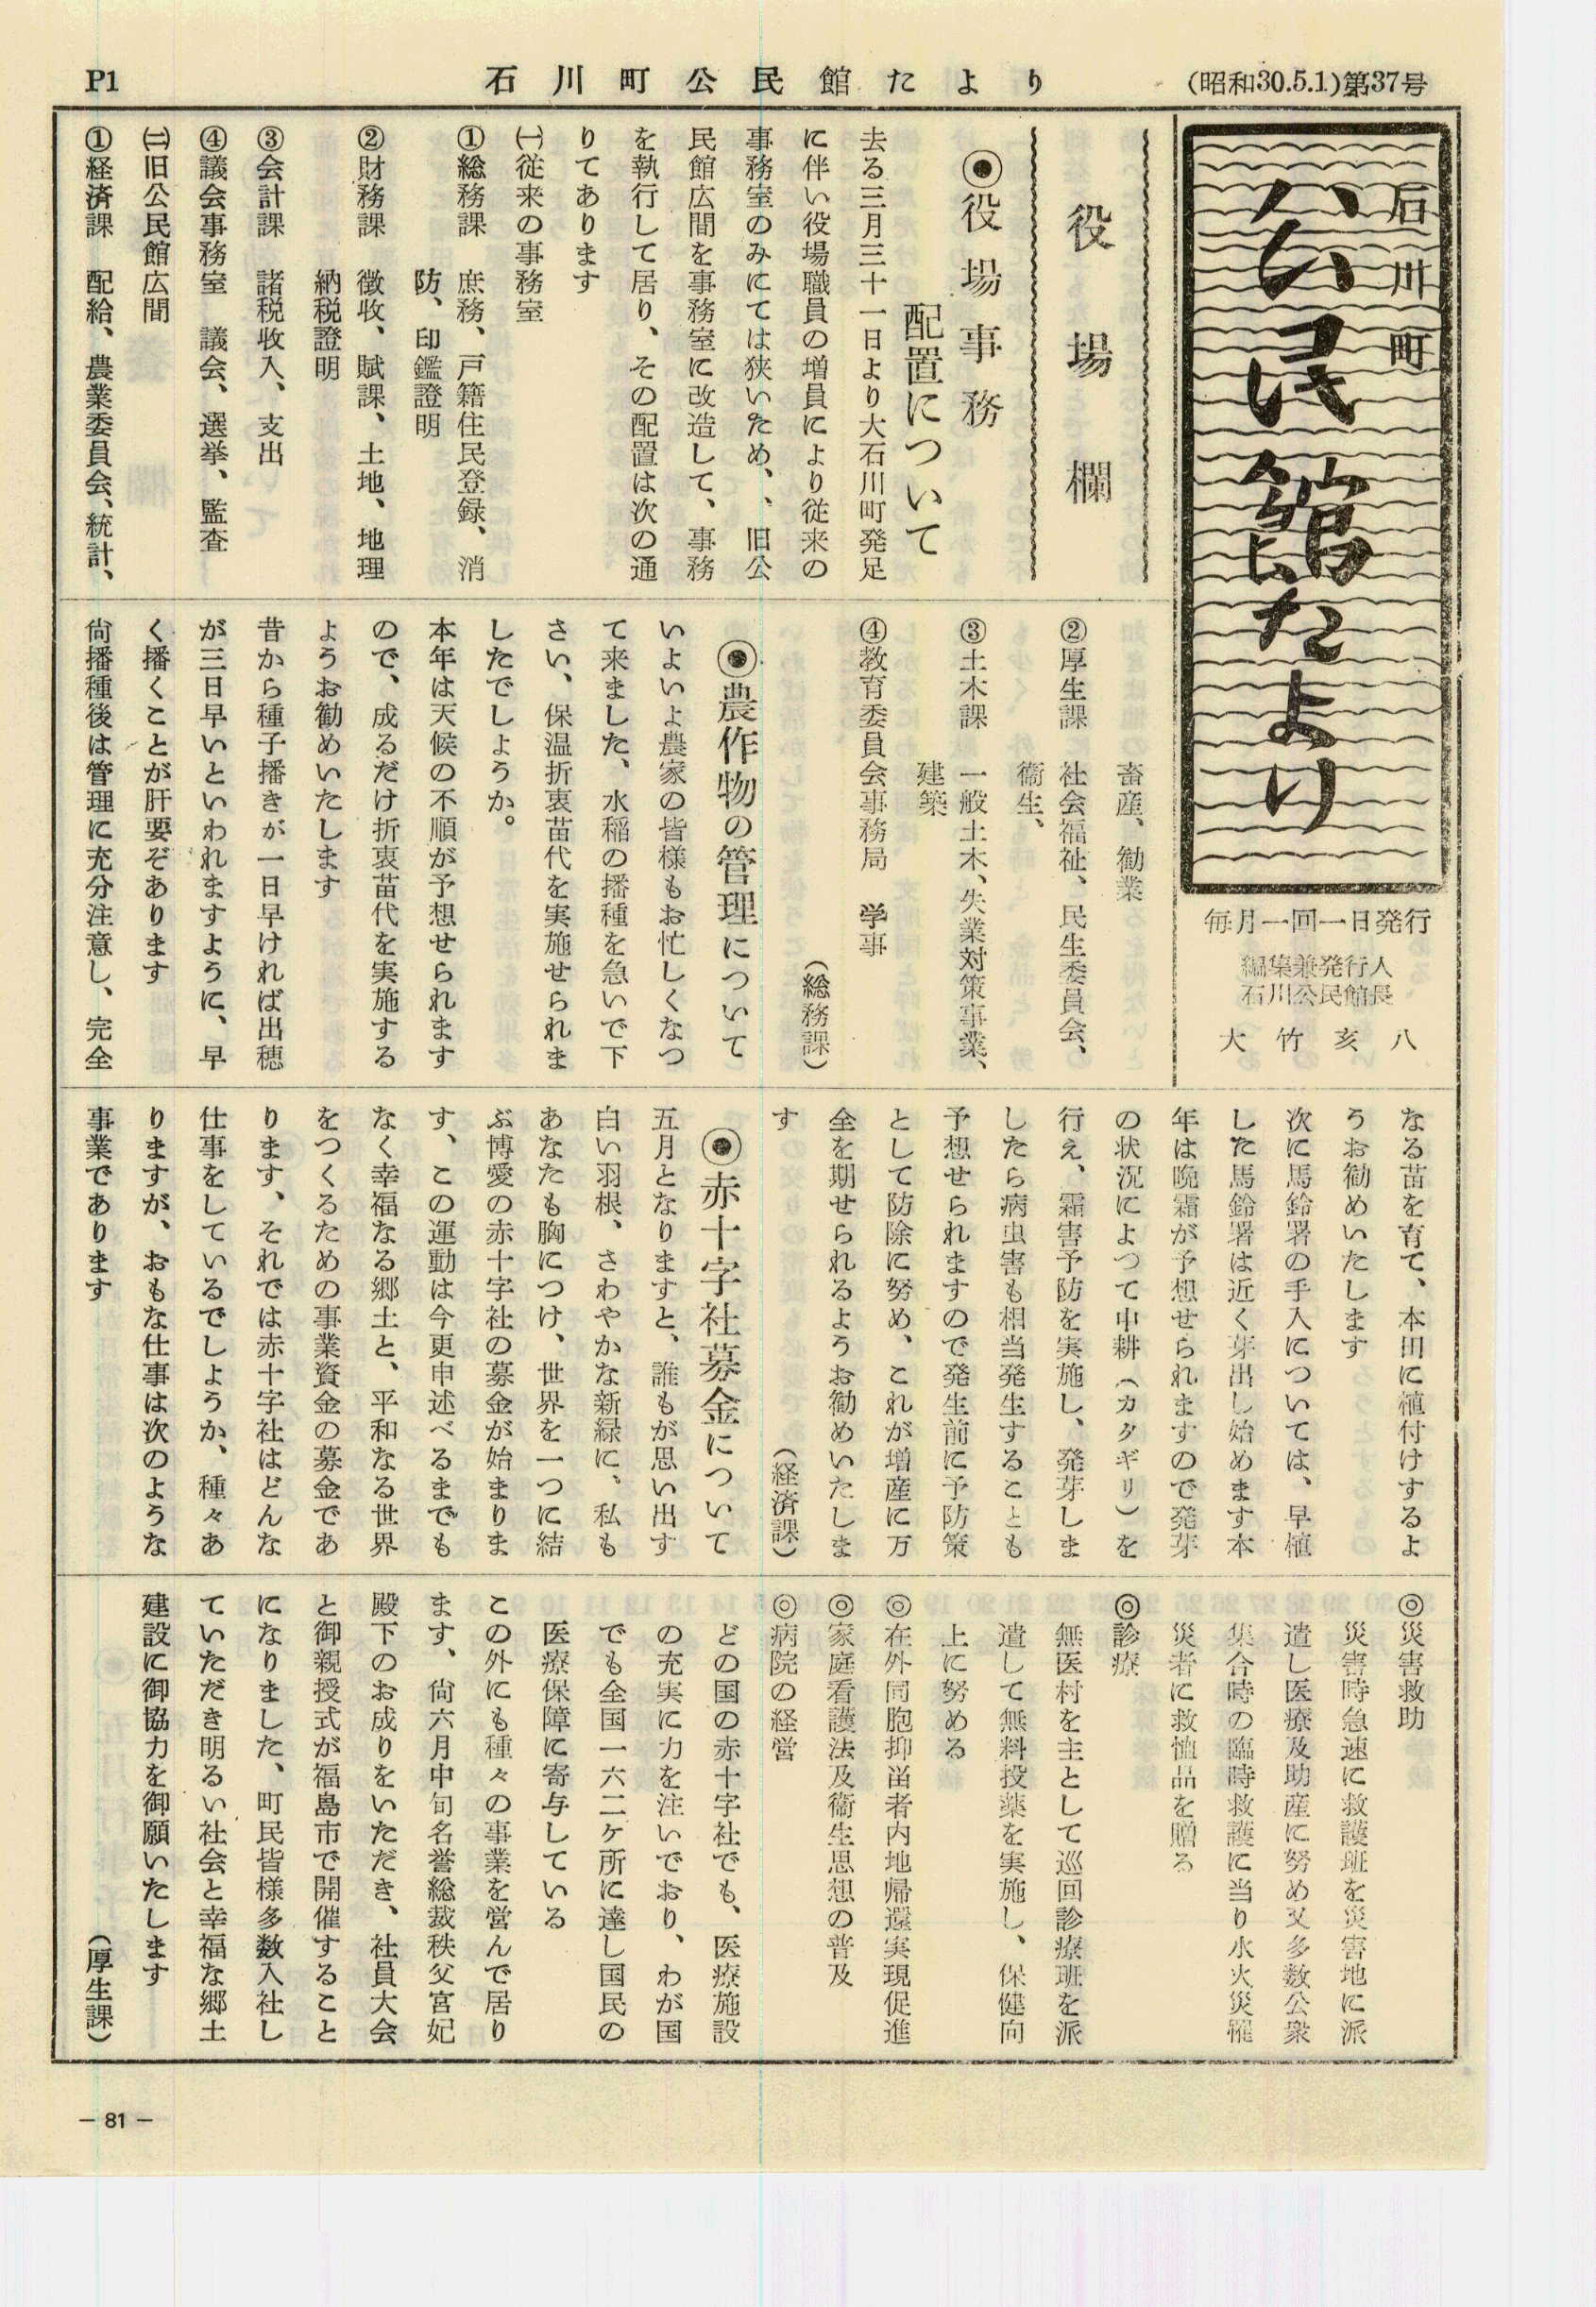 P1
石川町公民館たより
(昭和30.5.1)第37号
石川町
公民館たより
毎月一回一日発行
編集兼発行人
石川公民館長
大竹亥八
役場欄
◉役場事務
配置について
去る三月三十一日より大石川町発足
に伴い役場職員の増員により従来の
事務室のみにては狭いため、、旧公
民館広間を事務室に改造して、事務
を執行して居り、その配置は次の通
りてあります
㈠従来の事務室
①総務課　庶務、戸籍住民登録、消
防、印鑑證明
②財務課　徴收、賦課、土地、地理
納税證明
③会計課　諸税收入、支出
④議会事務室　議会、選挙、監査
㈡旧公民館広間
①経済課　配給、農業委員会、統計、
畜産、勧業
②厚生課　社会福祉、民生委員会、
衞生、
③土木課　一般土木、失業対策事業、
建築
④教育委員会事務局　学事
（総務課）
◉農作物の管理について
いよいよ農家の皆様もお忙しくなつ
て来ました、水稲の播種を急いで下
さい、保温折衷苗代を実施せられま
したでしようか。
本年は天候の不順が予想せられます
ので、成るだけ折衷苗代を実施する
ようお勧めいたします
昔から種子播きが一日早ければ出穂
が三日早いといわれますように、早
く播くことが肝要ぞあります
尙播種後は管理に充分注意し、完全
なる苗を育て、本田に植付けするよ
うお勧めいたします
次に馬鈴署の手入については、早植
した馬鈴署は近く芽出し始めます本
年は晩霜が予想せられますので発芽
の状況によつて中耕（カタギリ）を
行え、霜害予防を実施し、発芽しま
したら病虫害も相当発生することも
予想せられますので発生前に予防策
として防除に努め、これが増産に万
全を期せられるようお勧めいたしま
す
（経済課）
◉赤十字社募金について
五月となりますと、誰もが思い出す
白い羽根、さわやかな新緑に、私も
あなたも胸につけ、世界を一つに結
ぶ博愛の赤十字社の募金が始まりま
す、この運動は今更申述べるまでも
なく幸福なる郷土と、平和なる世界
をつくるための事業資金の募金であ
ります、それでは赤十字社はどんな
仕事をしているでしようか、種々あ
りますが、おもな仕事は次のような
事業であります
◎災害救助
災害時急速に救護班を災害地に派
遣し医療及助産に努め又多数公衆
集合時の臨時救護に当り水火災罹
災者に救恤品を贈る
◎診療
無医村を主として巡回診療班を派
遣して無料投薬を実施し、保健向
上に努める
◎在外同胞抑畄者内地帰還実現促進
◎家庭看護法及衞生思想の普及
◎病院の経営
どの国の赤十字社でも、医療施設
の充実に力を注いでおり、わが国
でも全国一六二ヶ所に達し国民の
医療保障に寄与している
この外にも種々の事業を営んで居り
ます、尙六月中旬名誉総裁秩父宮妃
殿下のお成りをいただき、社員大会
と御親授式が福島市で開催すること
になりました、町民皆様多数入社し
ていただき明るい社会と幸福な郷土
建設に御協力を御願いたします
（厚生課）
－81－